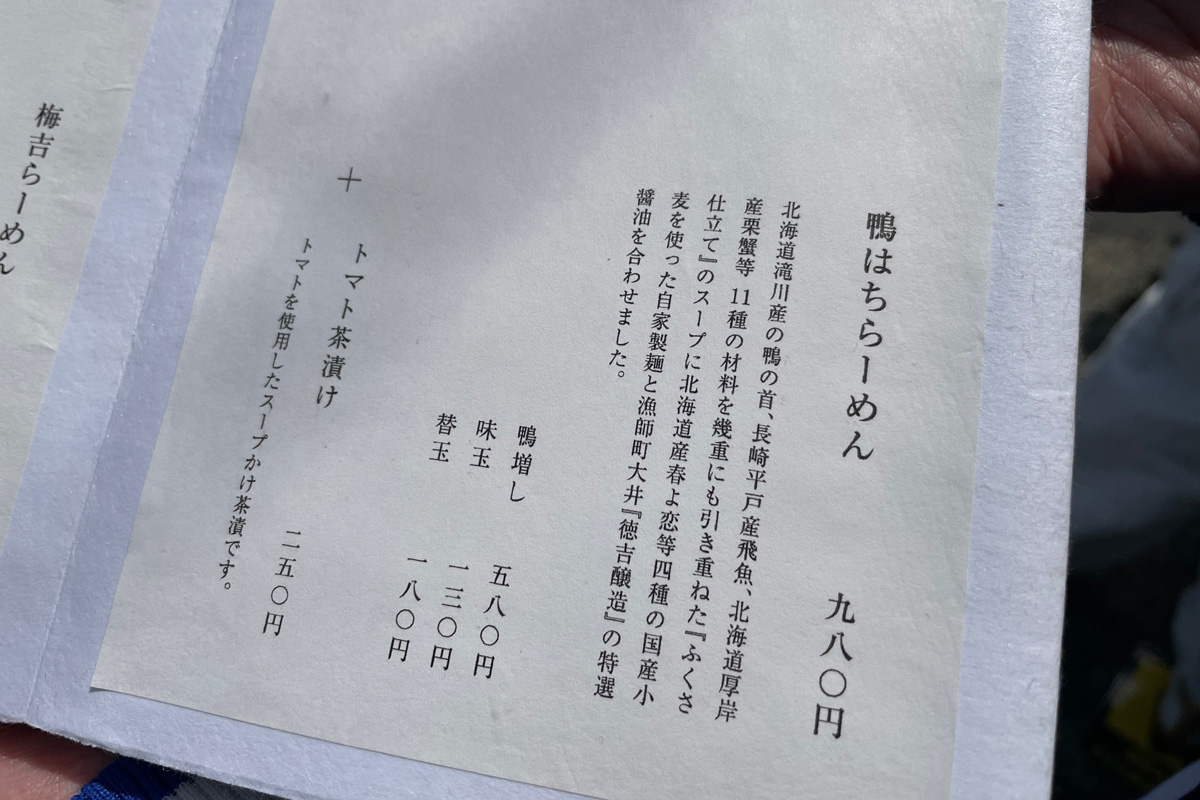 鴨はちらーめん 九八〇円
北海道滝川産の鴨の首、長崎平戸産飛魚、北海道厚岸
産栗蟹等11種の材料を幾重にも引き重ねた『ふくさ
仕立て』のスープに北海道産春よ恋等四種の国産小
麦を使った自家製麺と漁師町大井『徳吉醸造』の特選
醤油を合わせました。
鴨増し 五八〇円
味玉 一三〇円
替玉 一八〇円
＋ トマト茶漬け 二五〇円
トマトを使用したスープかけ茶漬です。
梅吉らーめん